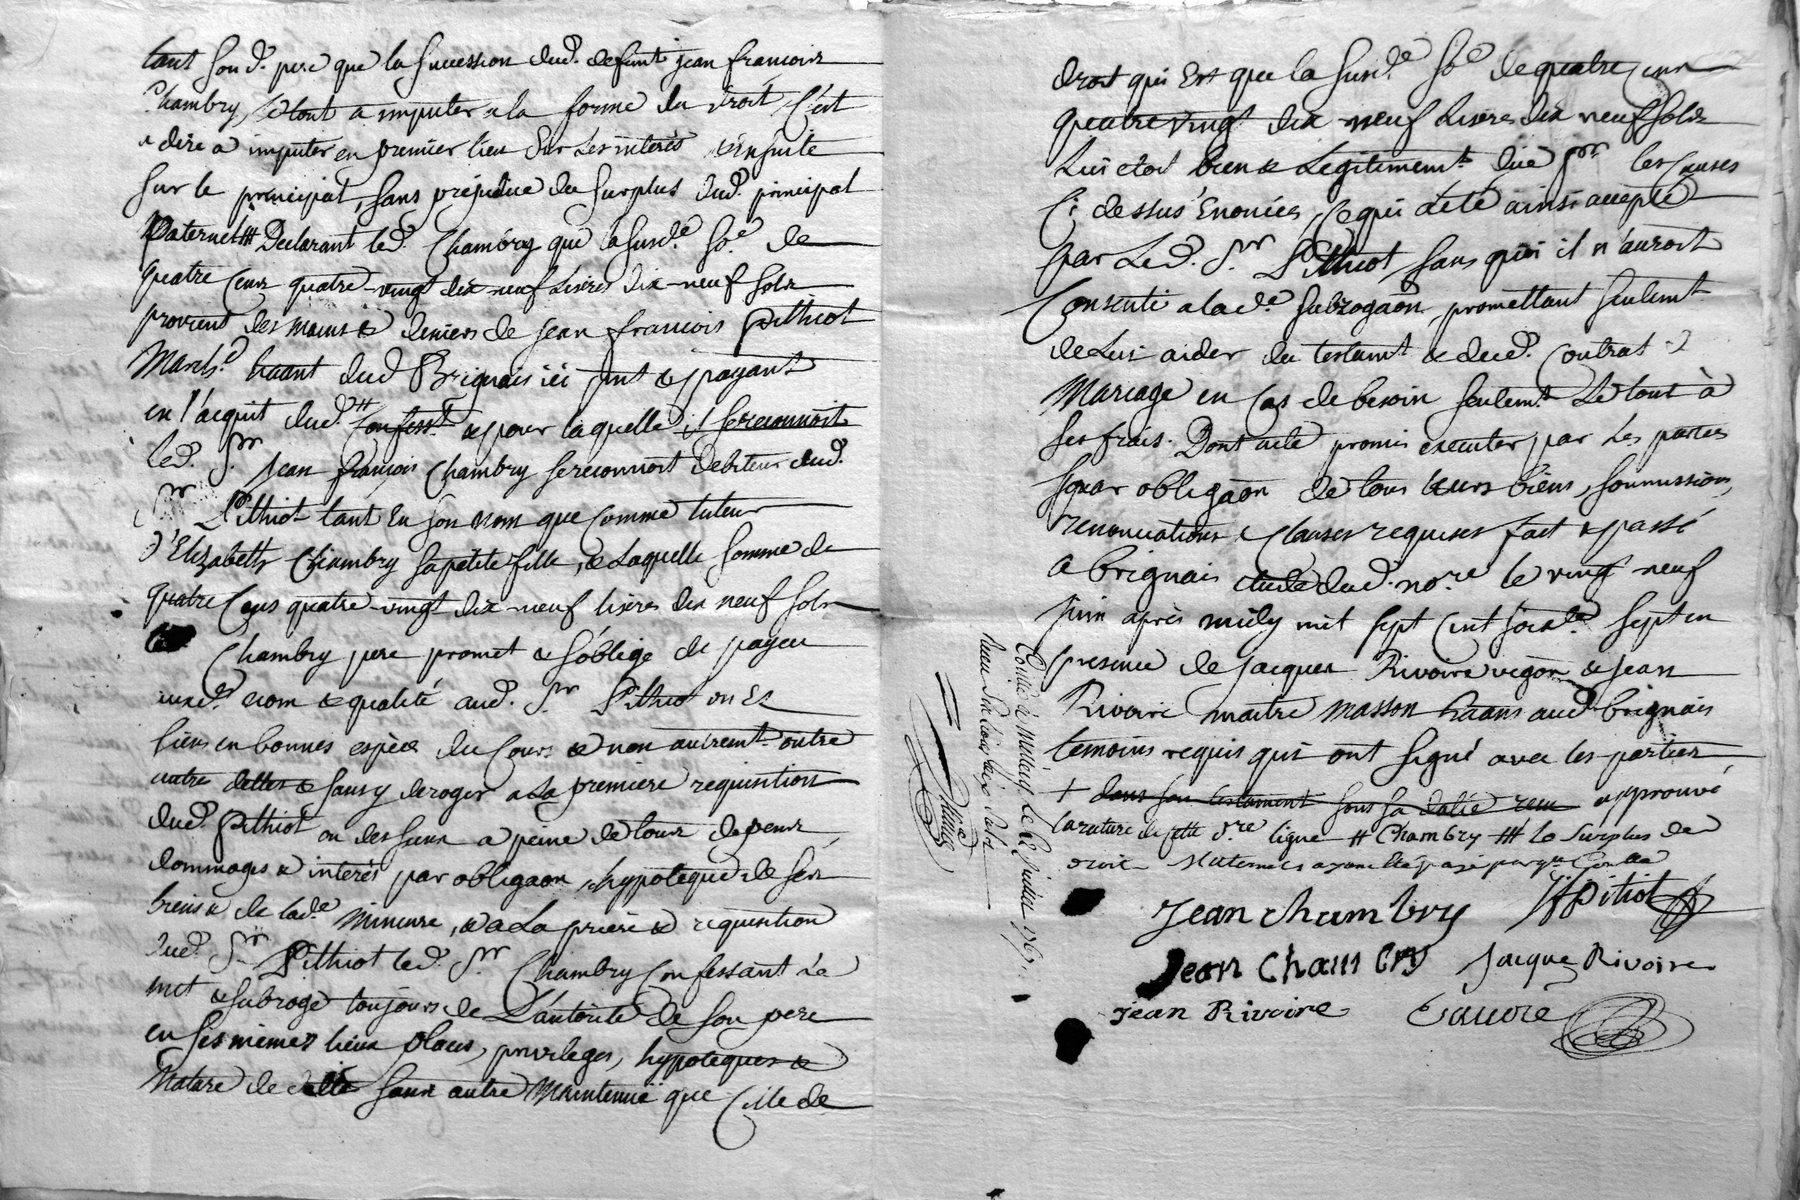 tant son d. pere que la succession dud. defunt jean françois
Chambry, le tout a imputer a la forme du droit, C'est
a dire a imputer en premier lieu sur les interés & ensuite
sur le principal, sans préjudice du surplus dud. principal
paternel ## Declarant led. Chambry que la susd.e so.e de
quatre Cens quatre-vingt dix-neuf Livres dix-neuf sols
provient des mains & deniers de jean françois pithiot
March.d h'aant dud Brignais ici p'nt & payant
en l'acquit dud.# Confess.t & pour laquelle il se reconnoit
led. S.r Jean françois Chambry se reconnoit debiteur dud.
S.r Pithiot tant en son nom que Comme tuteur
d'Elizabeth Chambry sa petite fille, & laquelle somme de
quatre Cens quatre-vingt dix-neuf livres dix neuf sols
Chambry pere promet & s'oblige de payer
auxd. nom & qualité aud. S.r Pithiot ou es
siens en bonnes espèces du Cours & non autremt. outre
autre dettes & sans y deroger a la premiere requisition
dud. Pithiot ou des siens a peine de tous depens,
dommages & interés par obligaon, hypoteque de ses
biens & de lad.e mineure, & a La prière & requisition
dud. S.r Pithiot led. S.r Chambry Confessant le
met & subroge toujours de L'autorité de son pere
en ses mêmes lieux places, privileges, hypoteques &
Nature de dette sans autre Maintenüe que Celle de
droit qui Est que la susd.e so.e de quatre Cens
quatre vingt dix-neuf Livres dix neuf sols
Lui etoit bien & Legitimemt. düe p.r les Causes
Ci dessus Enoncées, Ce qui a été ainsi accepté
par Led. S.r Pithiot, sans quoi il n'auroit
Consenti a lad.e subrogaon, promettant seulemt
de Lui aider du testamt & dud. Contrat de
Mariage en Cas de besoin seulemt. Le tout à
ses frais. Dont acte promis executer par les parties
par obligaon de tous leurs biens, soumissions,
renonciations & Clauses requises fait & passé
a Brignais etude dud. no.re le vingt neuf
juin après midy mil sept Cent soixte. sept en
presence de Jacques Rivoire vigon & Jean
Rivoire maitre masson h'aans aud Brignais
temoins requis qui ont signé avec les parties
+ dans son testament sous sa datte reçu approuvé
la rature de cette d.re ligne # Chambry ## Le surplus de
Jean Chambry Jf Pitiot
Jean Chambry Jacque Rivoire
Jean Rivoire